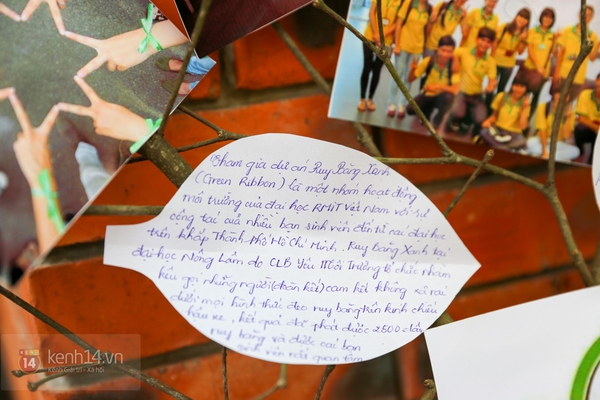 Tham gia dự án Ruy Băng Xanh
(Green Ribbon) là một nhóm hoạt động
môi trường của đại học RMIT Việt Nam với sự
cộng tác của nhiều bạn sinh viên đến từ các đại học
trên khắp Thành Phố Hồ Chí Minh. Ruy Băng Xanh tại
đại học Nông Lâm do CLB Yêu Môi Trường tổ chức nhằm
kêu gọi những người (chân kết) cam kết không xả rác
dưới mọi hình thức đeo ruy băng trên kính chiếu
hậu xe, kết quả đã phát được 2500 dải
ruy băng và được các bạn
sinh viên rất quan tâm
KENH 14
kenh14.vn
Kênh Giải trí - Xã hội